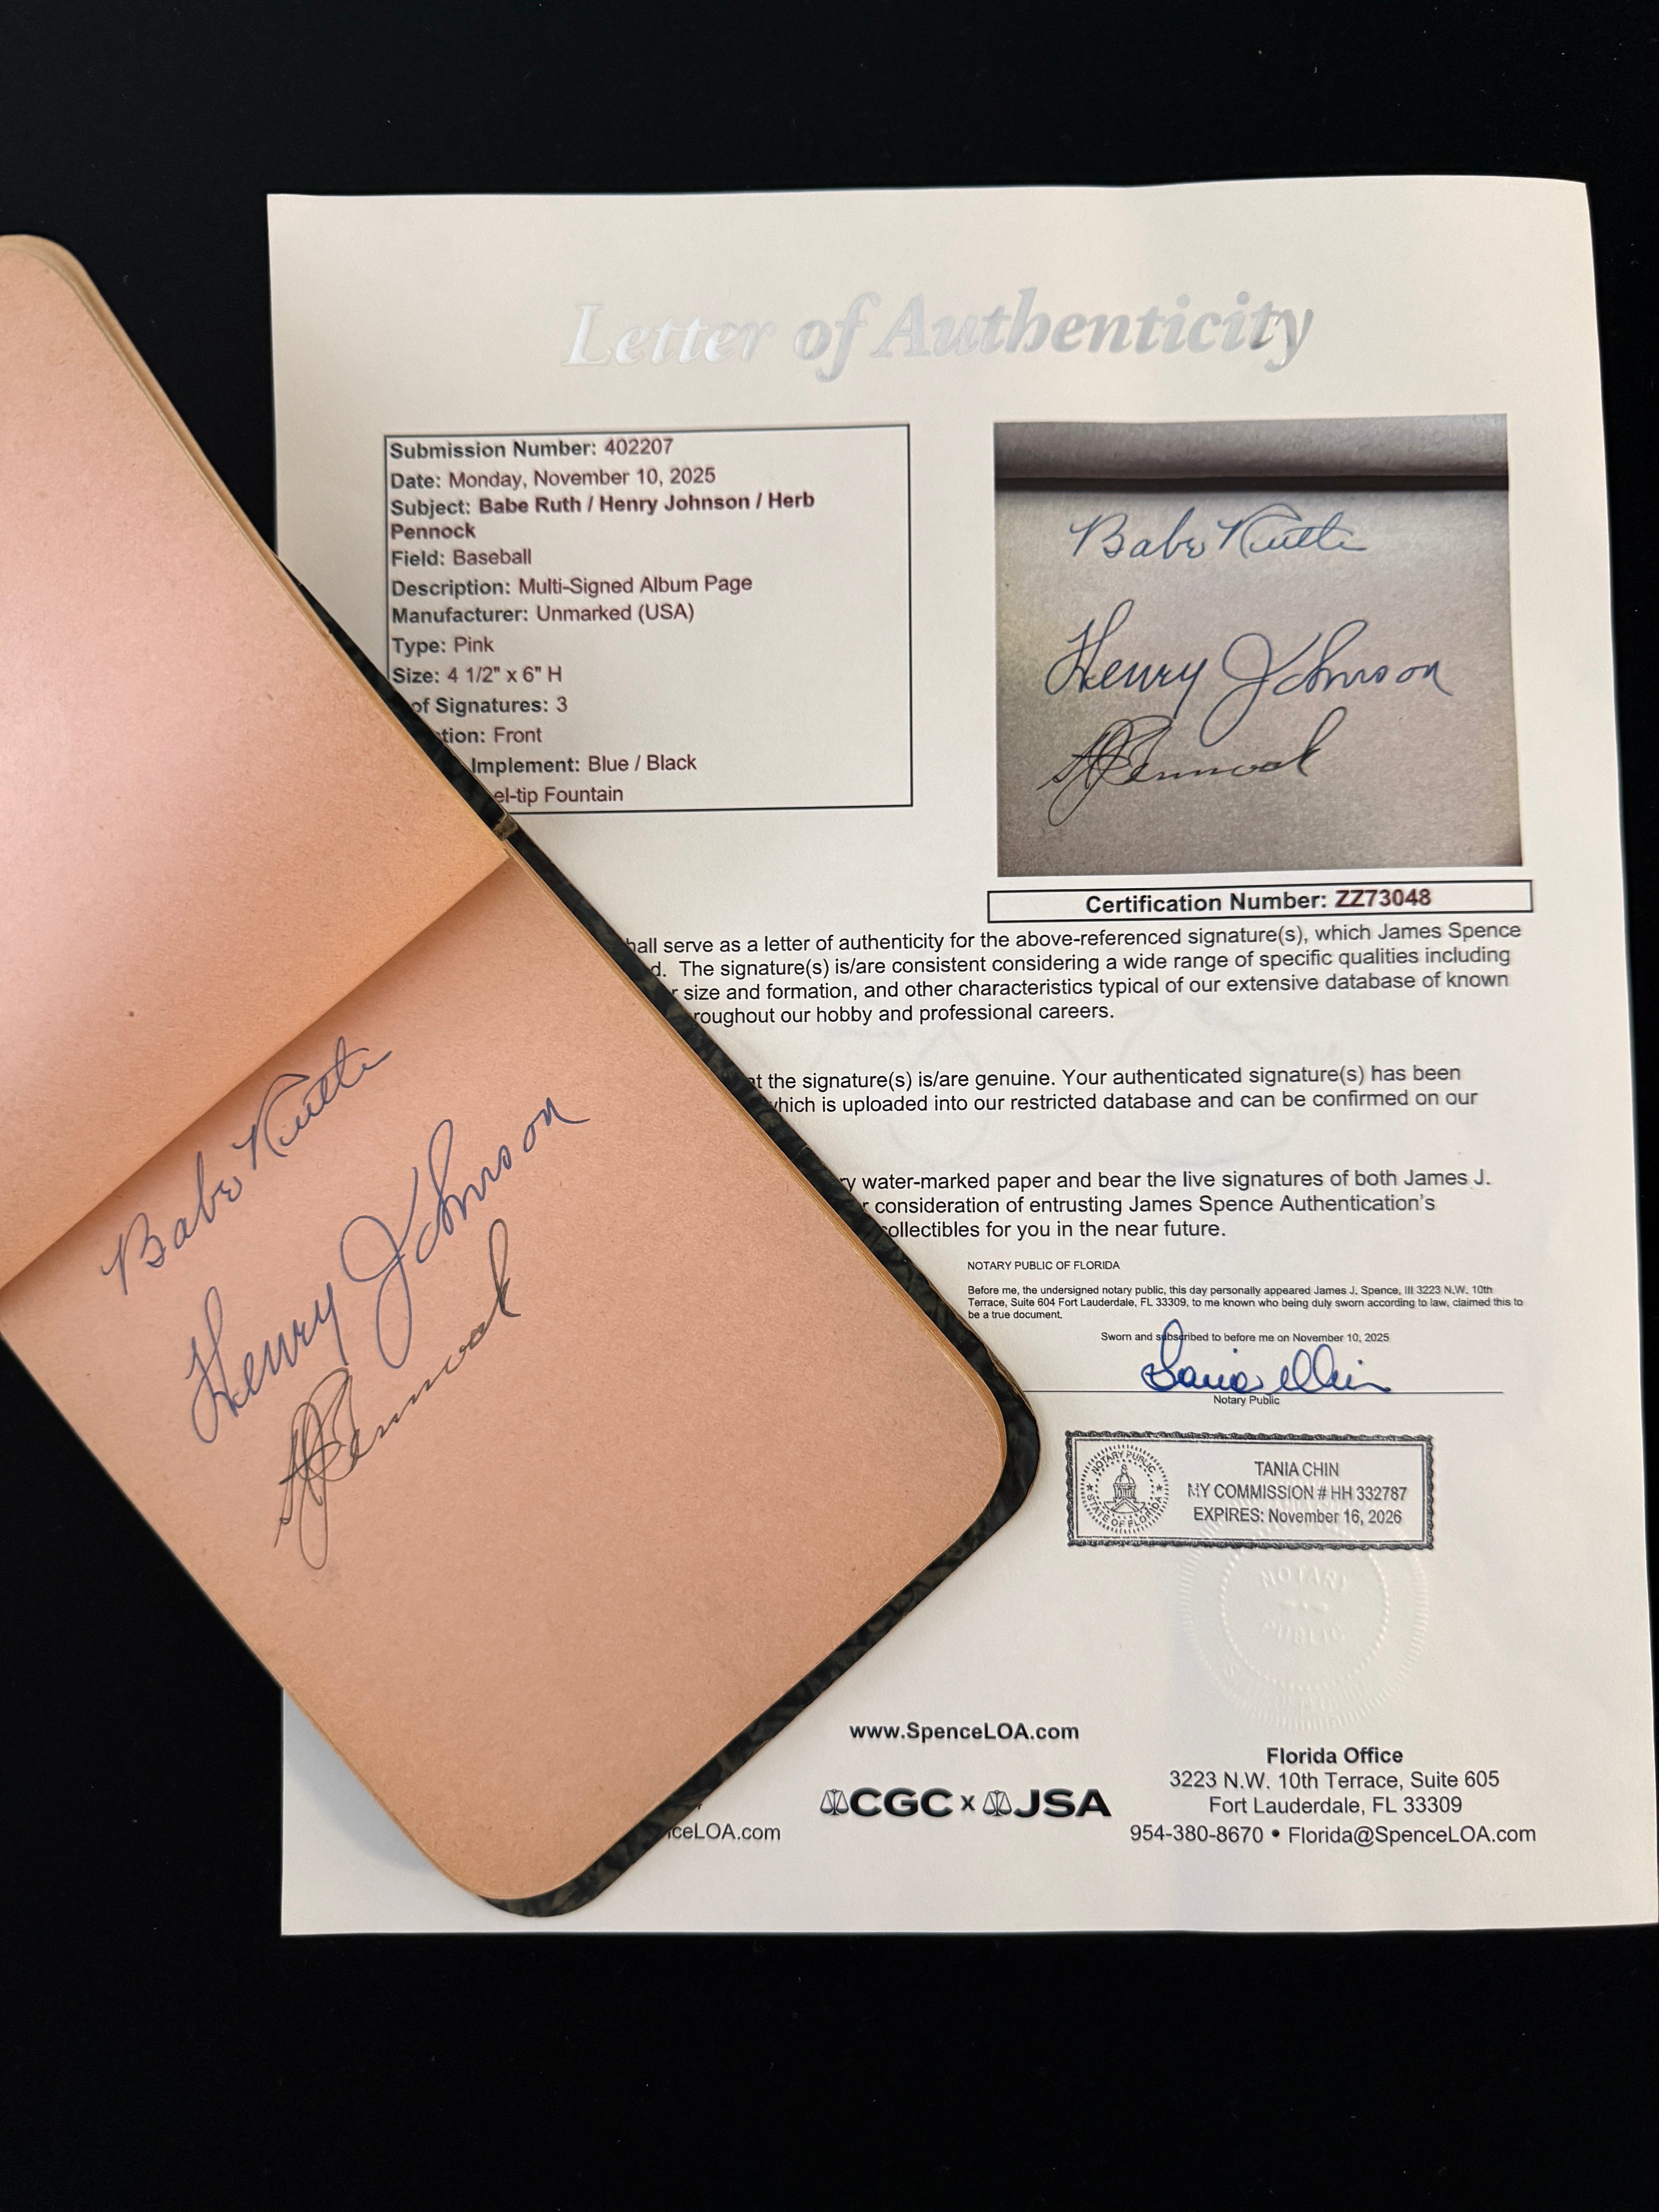 Letter of Authenticity
Submission Number: 402207
Date: Monday, November 10, 2025
Subject: Babe Ruth / Henry Johnson / Herb
Pennock
Field: Baseball
Description: Multi-Signed Album Page
Manufacturer: Unmarked (USA)
Type: Pink
Size: 4 1/2" x 6" H
of Signatures: 3
tion: Front
Implement: Blue / Black
el-tip Fountain
Babe Ruth
Henry Johnson
H J Pennock
Certification Number: ZZ73048
hall serve as a letter of authenticity for the above-referenced signature(s), which James Spence
d. The signature(s) is/are consistent considering a wide range of specific qualities including
r size and formation, and other characteristics typical of our extensive database of known
roughout our hobby and professional careers.
at the signature(s) is/are genuine. Your authenticated signature(s) has been
which is uploaded into our restricted database and can be confirmed on our
ry water-marked paper and bear the live signatures of both James J.
r consideration of entrusting James Spence Authentication's
collectibles for you in the near future.
NOTARY PUBLIC OF FLORIDA
Before me, the undersigned notary public, this day personally appeared James J. Spence, III 3223 N.W. 10th
Terrace, Suite 604 Fort Lauderdale, FL 33309, to me known who being duly sworn according to law, claimed this to
be a true document.
Sworn and subscribed to before me on November 10, 2025
Notary Public
NOTARY PUBLIC
STATE OF FLORIDA
TANIA CHIN
MY COMMISSION # HH 332787
EXPIRES: November 16, 2026
NOTARY
PUBLIC
www.SpenceLOA.com
CGC x JSA
ceLOA.com
Florida Office
3223 N.W. 10th Terrace, Suite 605
Fort Lauderdale, FL 33309
954-380-8670 • Florida@SpenceLOA.com
Babe Ruth
Henry Johnson
H J Pennock